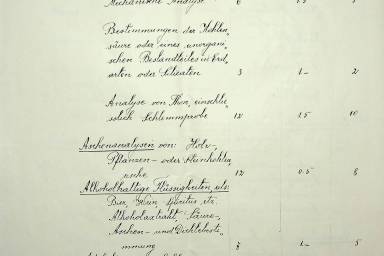 Mechanische Analyse 6 1.5 5
Bestimmungen der Kohlen-
säure oder eines unorgani-
schen Bestandteiles in Erd-
arten oder Silicaten 3 1.- 2
Analyse von Thon, einschli-
esslich Schlemmprobe 12 1.5 10
Aschenanalysen von: Holz-,
Pflanzen- oder Steinkohlen-
asche 12 0.5 8
Alkoholhaltige Flüssigkeiten als:
Bier, Wein, Spiritus etc.
Alkoholextrakt, Säure-,
Aschen- und Dichtebest-
immung 1.- 5